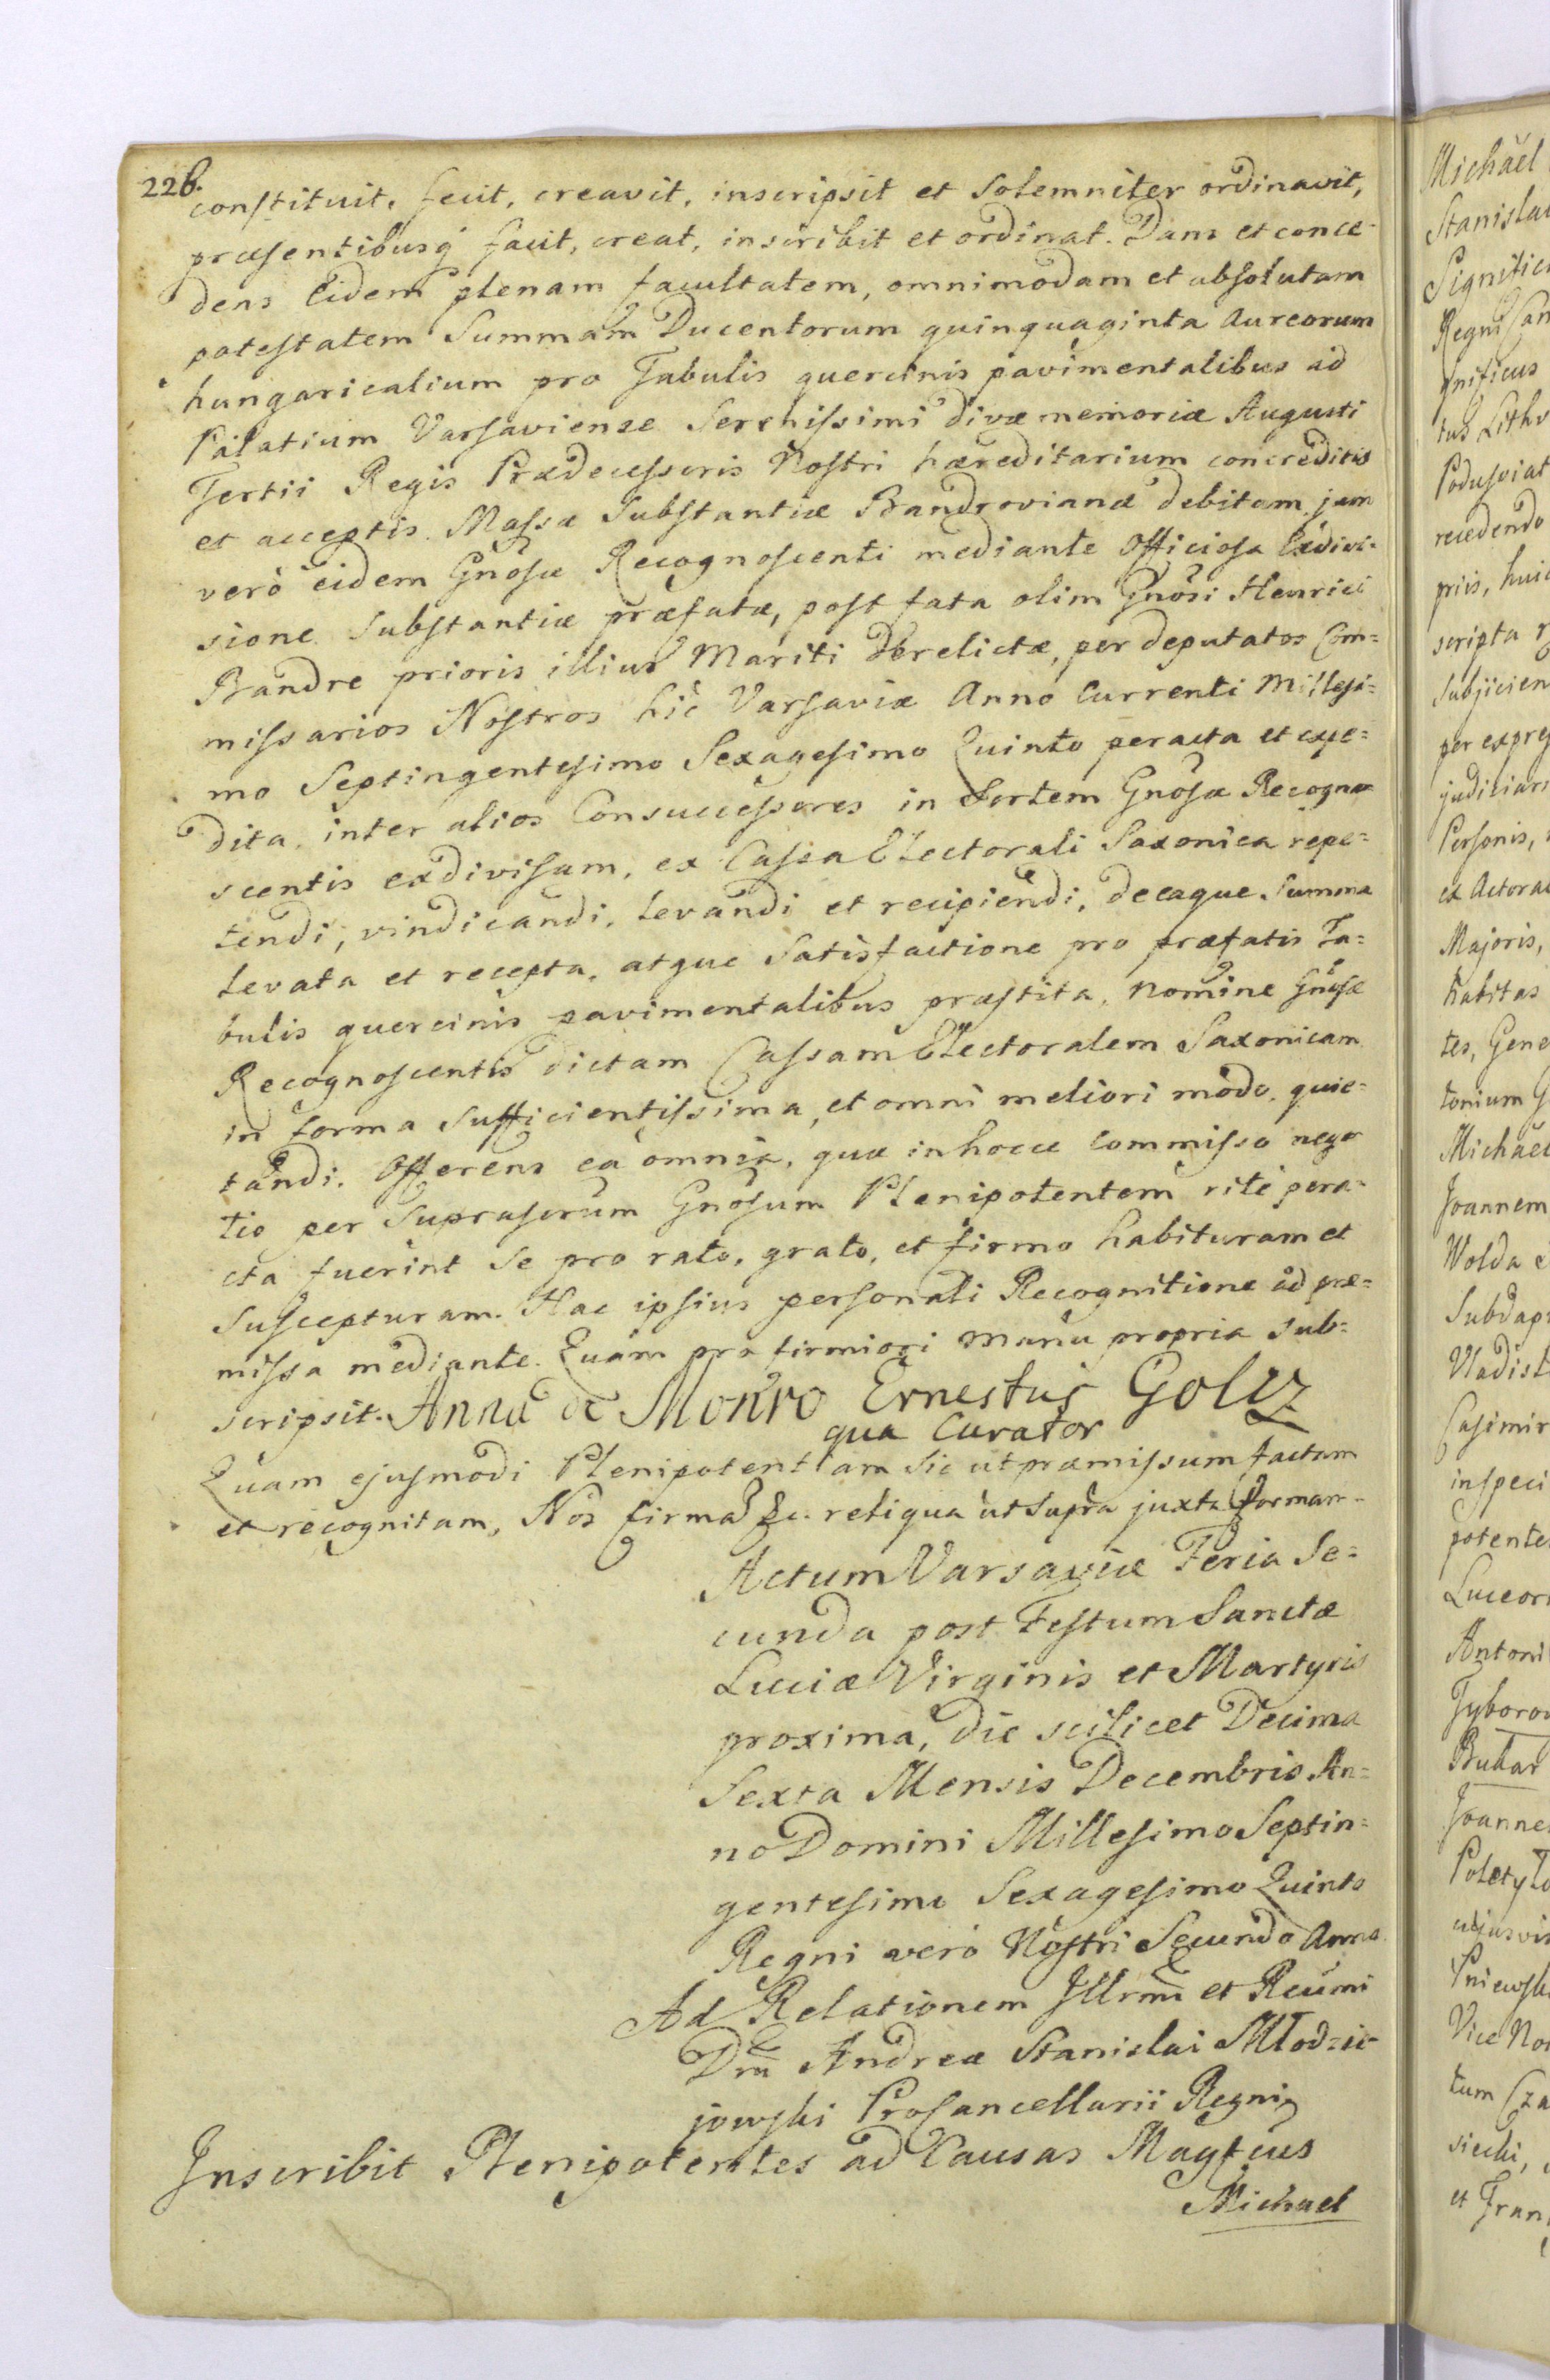 226.
constituit, fecit, creavit, inscripsit et Solemniter ordinavit,
præsentibusq́ facit, creat, inscribit et ordinat. Dans et conce-
dens Eidem plenam facultatem, omnimodam et absolutam
potestatem Summam Ducentorum quinquaginta Aureorum
hungaricalium pro Tabulis quercinis pavimentalibus ad
Palatium Varsaviense Serenissimi divæ memoriæ Augusti
Tertii Regis Prædecessoris Nostri hæreditarium concreditis
et acceptis Massæ Substantiæ Brandrovianæ debitam, jam
verò eidem Gnosæ Recognoscenti mediante Officiosa Exdivi=
sione Substantiæ præfatæ, post fata olim Gnosi Henrici
Bandre prioris illius Mariti derelictæ, per deputatos Com=
missarios Nostros hic Varsaviæ Anno Currenti Millesi=
mo Septingentesimo Sexagesimo Quinto peracta et expe=
dita, inter alios Consuccessores in Sortem Gnosæ Recogno
scentis exdivisam, ex Cassa Electorali Saxonica repe=
tendi, vindicandi, levandi et recipiendi, deeaque Summa
levata et recepta, atque Satisfactione pro præfatis Ta=
bulis quercinis pavimentalibus præstita, nomine Gnosæ
Recognoscentis dictam Cassam Electoralem Saxonicam
in forma Sufficientissima, et omni meliori modo, quie=
tandi. Offerens ea omnia, quæ in hocce Commisso nego
tio per Suprascrum Gnosum Plenipotentem ritè pera=
cta fuerint Se pro rato, grato, et firmo habituram et
Suscepturam. Hac ipsius personali Recognitione ad præ=
missa mediante. Quam pro firmiori manu propria Sub=
scripsit. Anna de Monro Ernestus Goltz
qua Curator
Quam ejusmodi Plenipotentiam Sic ut præmissum factam
et recognitam, Nos firma &c. reliqua ut Supra juxta formam.
Actum Varsaviæ Feria Se=
cunda post Festum Sanctæ
Luciæ Virginis et Martyris
proxima, die scilicet Decima
Sexta Mensis Decembris An=
no Domini Millesimo Septin=
gentesimo Sexagesimo Quinto
Regni verò Nostri Secundo Anno
Ad Relationem Illrmi et Reumi
Dni Andreæ Stanislai Młodzie
jowski ProCancellarii Regni
Inscribit Plenipotentes ad Causas Magfcus
Michael
Michael
Stanislai
Regni Can
gnificus
tus Lithv
recedendo
priis, huic
scripta
Subjicien
Personis,
Majoris,
habitas
tes, Gene
tonium G
Michael
Joannem
Wolda
Vladisl
Casimir
inspeci
potente
Luceori
Antoni
Joanne
Vice No
siecki,
et Fran